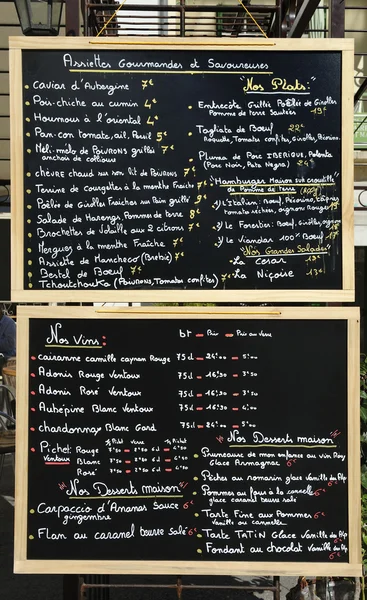 Assiettes Gourmandes et Savoureuses
Caviar d'Aubergine 7€
Pois-chiche au cumin 4€
Houmous à l'oriental 4€
Pan-con tomate, ail, Persil 5€
Méli-mélo de Poivrons grillés 7€
anchois de collioure
chèvre chaud sur son lit de Poivrons 7€
Terrine de courgettes à la menthe Fraîche 7€
Poêlée de Girolles Fraîches sur Pain grillé 9€
Salade de Harengs, Pommes de terre 8€
Brochettes de Volaille aux 2 citrons 7€
Merguez à la menthe Fraîche 7€
Assiette de Mancheco (Brebis) 7€
Bostel de Boeuf 7€
Tchoutchouka (Poivrons, Tomates confites) 7€
"Nos Plats:"
Entrecôte Grillée Poêlée de Girolles
Pomme de terre Sautées 19€
Tagliata de Boeuf 22€
Roquette, Tomates confites, Girolles, Pécorino
Pluma de Porc IBERIQUE, Polenta
(Porc Noir, Pata Negra) 24€
"Hamburger Maison sur croustille
de Pomme de terre"
1/ L'Italien: Boeuf, Pécorino, câpres
tomates sèches, oignons Rouges
2/ Le Forestier: Boeuf, Girolles, oignons
3/ Le Viandar 100% Boeuf
"Nos Grandes Salades"
La César 13€
La Niçoise 13€
Nos Vins:
bt Prix Prix au Verre
Cairanne camille cayran Rouge 75cl 26'00 5'00
Adonis Rouge Ventoux 75cl 16'50 3'50
Adonis Rosé Ventoux 75cl 16'50 3'50
Aubépine Blanc Ventoux 75cl 16'50 3'50
chardonnay Blanc Gard 75cl 16'50 3'50
Pichet: Rouge
Ventoux Blanc
Rosé
Nos Desserts maison
Carpaccio d'Ananas Sauce 6€
gingembre
Flan au caramel beurre salé 6€
Nos Desserts maison
Pruneaux de mon enfance au vin
Glace Armagnac 6€
Pêches au romarin glace Vanille
Pommes au four à la cannelle 6€
glace caramel beurre salé
Tarte Fine aux Pommes 6€
Vanille ou cannelle
Tarte TATIN Glace Vanille
Fondant au chocolat Vanille